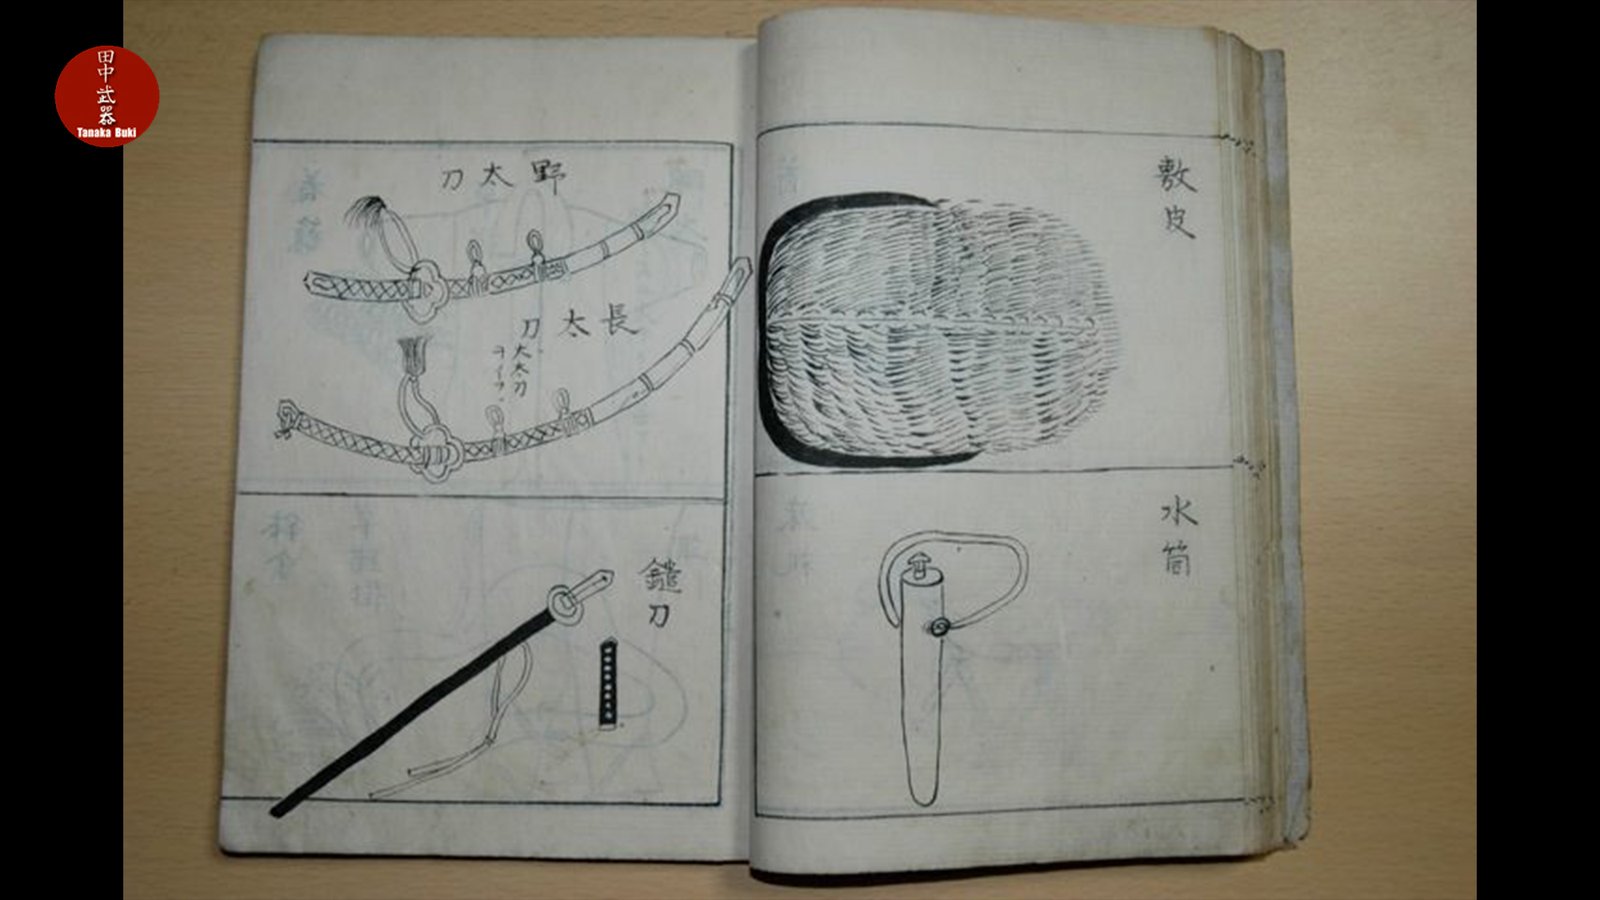 田中武器
Tanaka Buki
敷皮
水筒
野太刀
長太刀
大太刀
ヲイフ
鑓刀